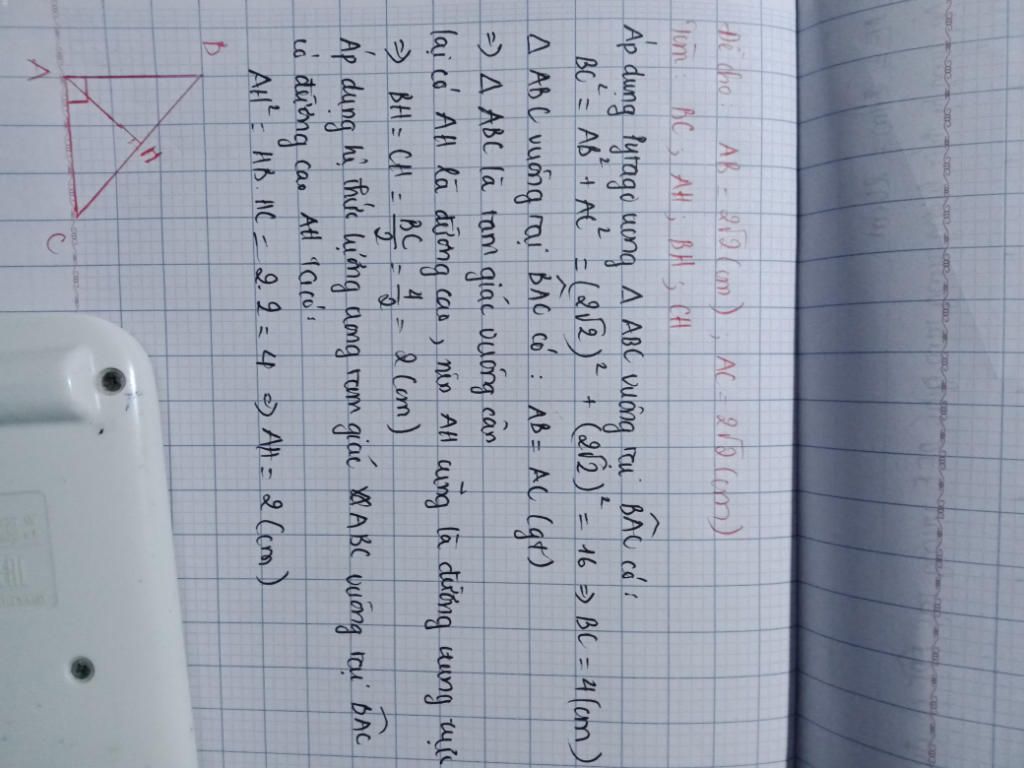 Đề cho: AB = 2√2 (cm), AC = 2√2 (cm)
Tìm: BC; AH; BH; CH
Áp dụng Pytago trong Δ ABC vuông tại BAC có:
BC² = AB² + AC² = (2√2)² + (2√2)² = 16 => BC = 4 (cm)
Δ ABC vuông tại BAC có: AB = AC (gt)
=> Δ ABC là tam giác vuông cân
lại có AH là đường cao, nên AH cũng là đường trung trực
=> BH = CH = BC/2 = 4/2 = 2 (cm)
Áp dụng hệ thức lượng trong tam giác ABC vuông tại BAC
có đường cao AH ta có:
AH² = HB.HC = 2.2 = 4 => AH = 2 (cm)
B
A
H
C